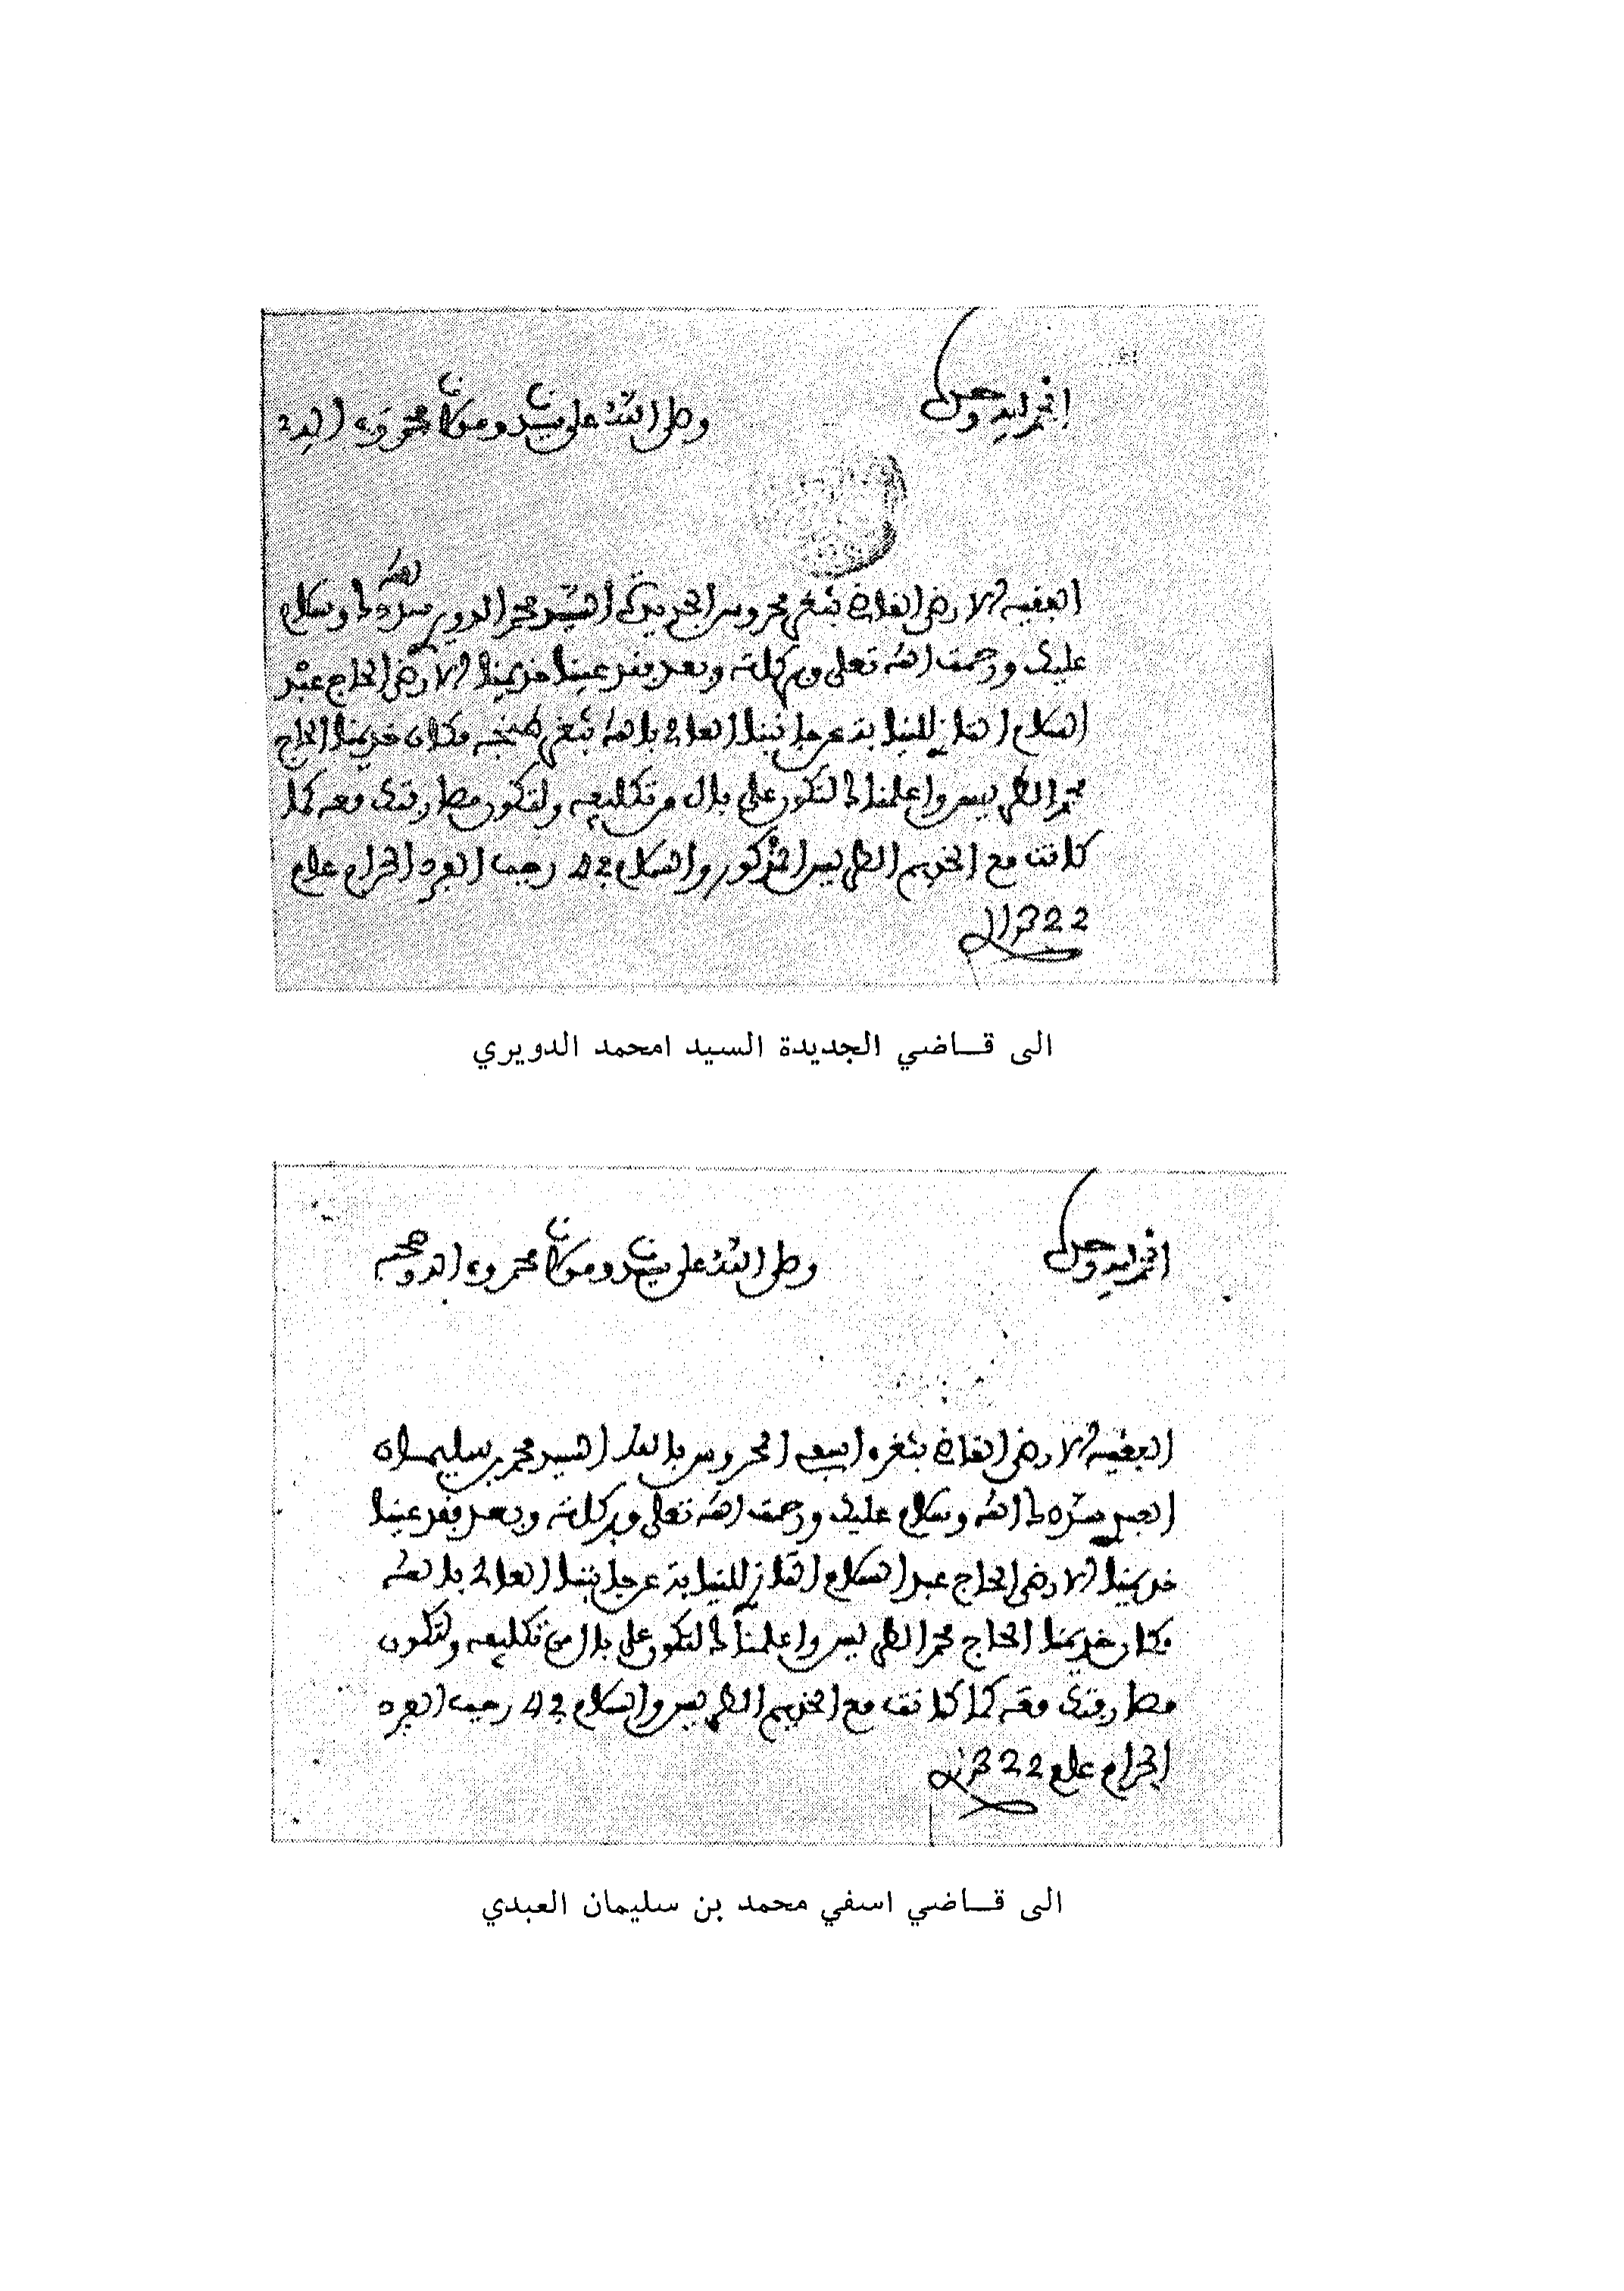 الحمد لله وحده
وصلى الله على سيدنا ومولانا محمد وءاله
الفقيه الارضى القاضي بثغر محروس الجديدة السيد محمد الدويري سددك الله وسلام
عليك ورحمت الله تعلى وبركاته وبعد فقد عينا خديمنا الارضى الحاج عبد
السلام التازي للنيابة عن جانبنا العالي بالله بثغر طنجه مكان خديمنا الحاج
محمد الطريس واعلمناك لتكون على بال من تكليفه ولتكون مطارقتك معه كما
كانت مع الخديم الطريس المذكور والسلام في رجب الفرد الحرام عام
1322
الى قــاضي الجديدة السيد امحمد الدويري
الحمد لله وحده
وصلى الله على سيدنا ومولانا محمد وءاله وصحبه
الفقيه الارضى القاضي بثغر ءاسفي المحروس بالله السيد محمد بن سليمان
العبدي سددك الله وسلام عليك ورحمت الله تعلى وبركاته وبعد فقد عينا
خديمنا الارضى الحاج عبد السلام التازي للنيابة عن جانبنا العالي بالله
مكان خديمنا الحاج محمد الطريس واعلمناك لتكون على بال من تكليفه ولتكون
مطارقتك معه كما كانت مع الخديم الطريس والسلام في رجب الفرد
الحرام عام 1322
الى قــاضي اسفي محمد بن سليمان العبدي